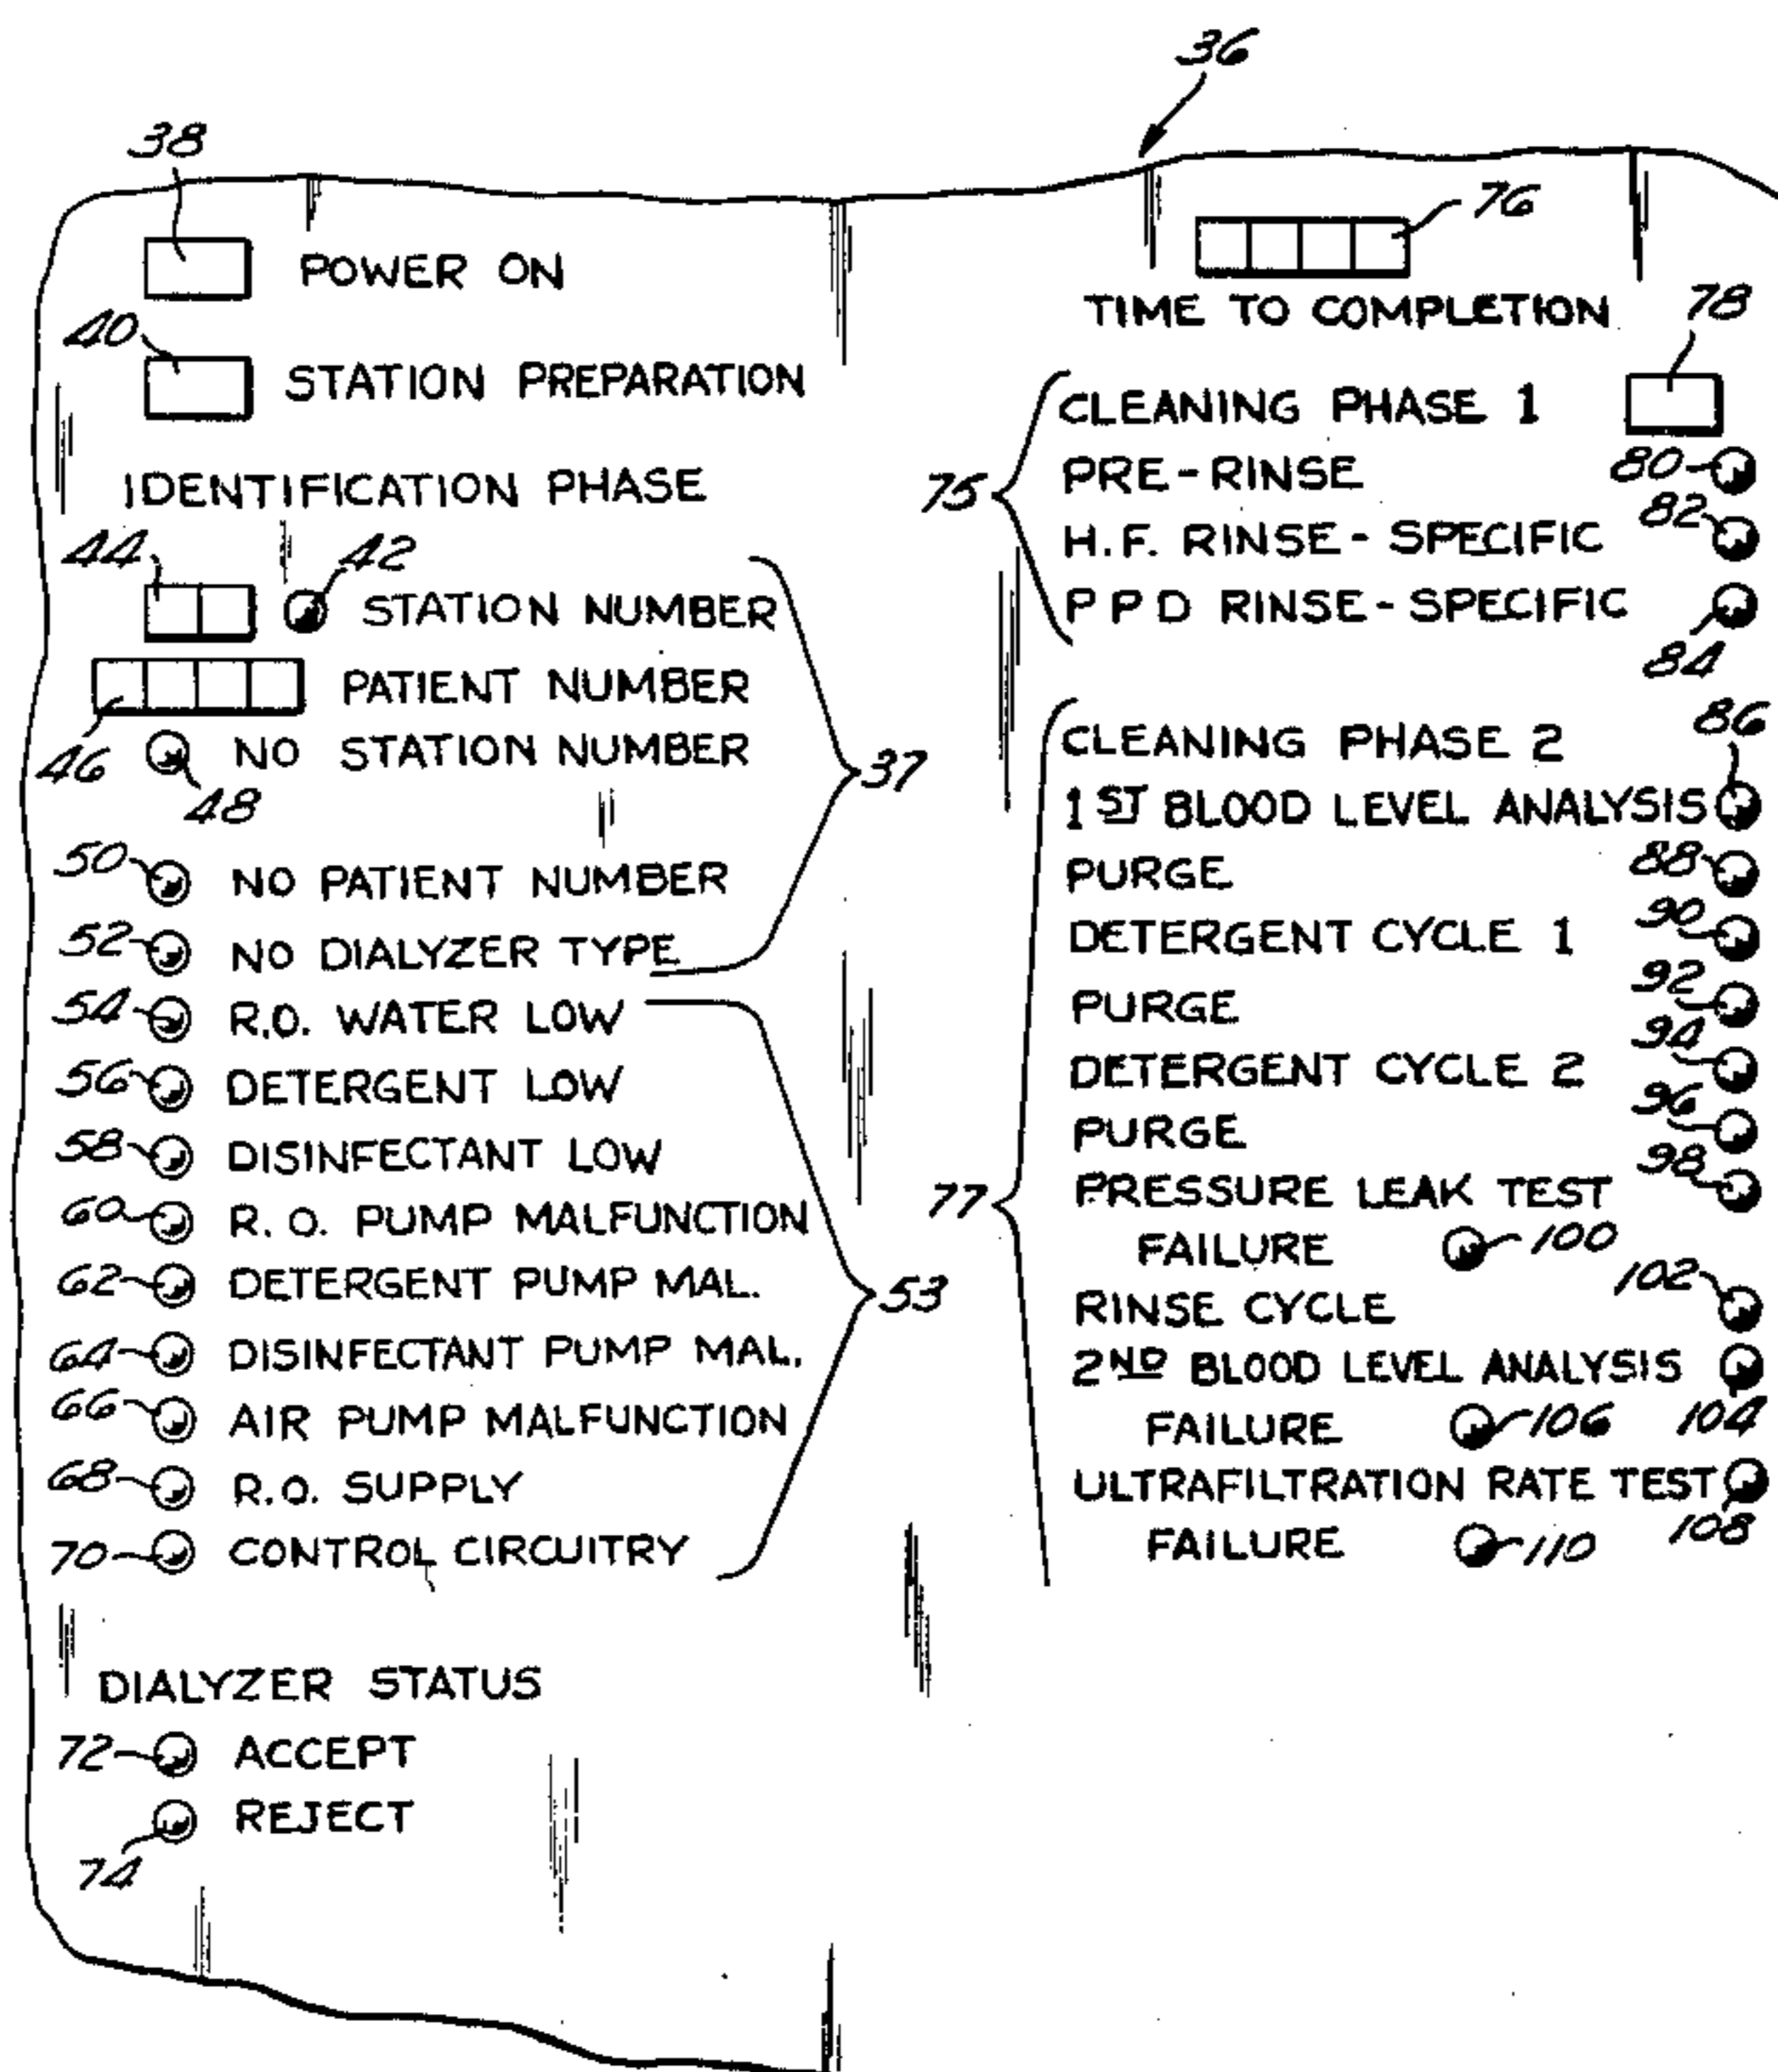 36
38
POWER ON
40
STATION PREPARATION
IDENTIFICATION PHASE
44
42
STATION NUMBER
PATIENT NUMBER
46
NO STATION NUMBER
48
37
50 NO PATIENT NUMBER
52 NO DIALYZER TYPE
54 R.O. WATER LOW
56 DETERGENT LOW
58 DISINFECTANT LOW
60 R.O. PUMP MALFUNCTION
62 DETERGENT PUMP MAL.
53
64 DISINFECTANT PUMP MAL.
66 AIR PUMP MALFUNCTION
68 R.O. SUPPLY
70 CONTROL CIRCUITRY
DIALYZER STATUS
72 ACCEPT
REJECT
74
76
TIME TO COMPLETION
78
75
CLEANING PHASE 1
PRE-RINSE 80
H.F. RINSE-SPECIFIC 82
PPD RINSE-SPECIFIC
84
CLEANING PHASE 2
86
1ST BLOOD LEVEL ANALYSIS
PURGE 88
DETERGENT CYCLE 1 90
PURGE 92
DETERGENT CYCLE 2 94
PURGE 96
77
PRESSURE LEAK TEST 98
FAILURE 100
RINSE CYCLE 102
2ND BLOOD LEVEL ANALYSIS
FAILURE 106 104
ULTRAFILTRATION RATE TEST
FAILURE 110 108